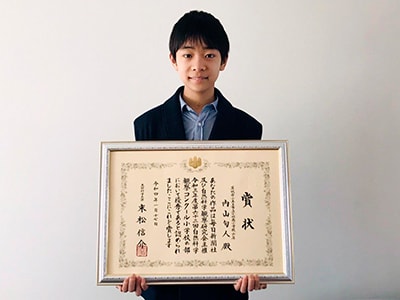 賞状
内山旬人 殿
あなたの作品は毎日新聞社
及び自然科学観察研究会主催
令和三年度第六十二回自然科学
観察コンクール小学校の部
において優秀であると認められ
ましたのでこれを賞します
令和四年一月
末松信介